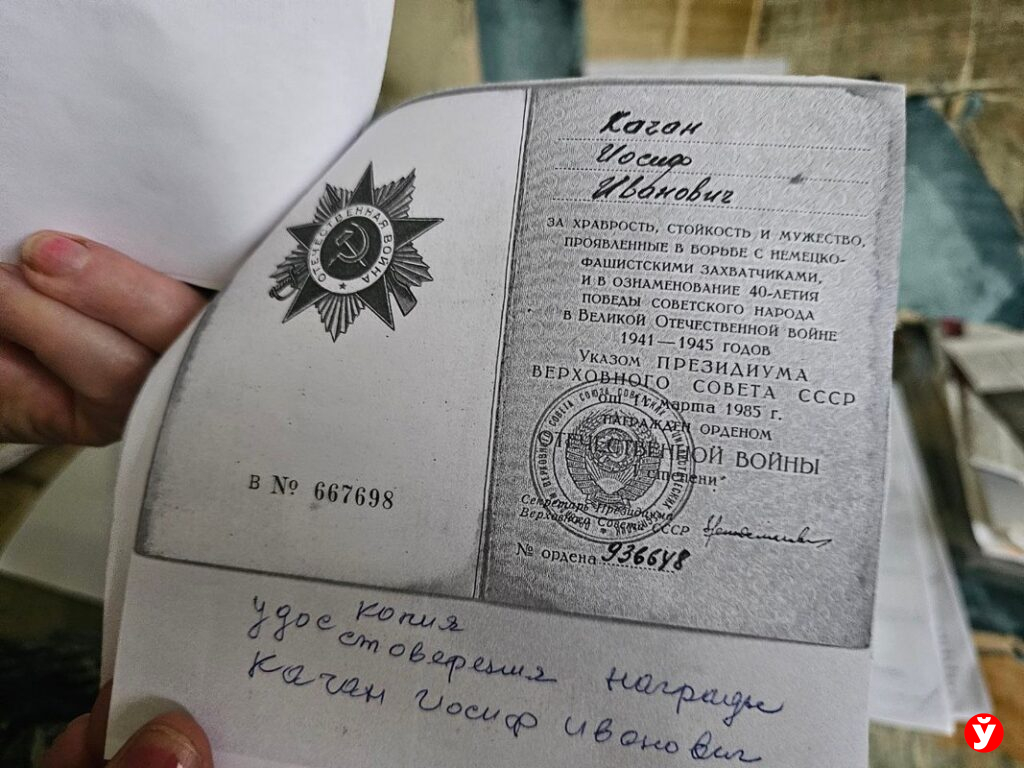 ОТЕЧЕСТВЕННАЯ ВОЙНА
В № 667698
Качан
Иосиф
Иванович
ЗА ХРАБРОСТЬ, СТОЙКОСТЬ И МУЖЕСТВО,
ПРОЯВЛЕННЫЕ В БОРЬБЕ С НЕМЕЦКО-
ФАШИСТСКИМИ ЗАХВАТЧИКАМИ,
И В ОЗНАМЕНОВАНИЕ 40-ЛЕТИЯ
ПОБЕДЫ СОВЕТСКОГО НАРОДА
В ВЕЛИКОЙ ОТЕЧЕСТВЕННОЙ ВОЙНЕ
1941—1945 ГОДОВ
УКАЗОМ ПРЕЗИДИУМА
ВЕРХОВНОГО СОВЕТА СССР
от марта 1985 г.
НАГРАЖДЕН ОРДЕНОМ
ОТЕЧЕСТВЕННОЙ ВОЙНЫ
степени
Секретарь Президиума
Верховного Совета СССР
№ ордена 936648
копия
удостоверения награды
Качан Иосиф Иванович
Ў